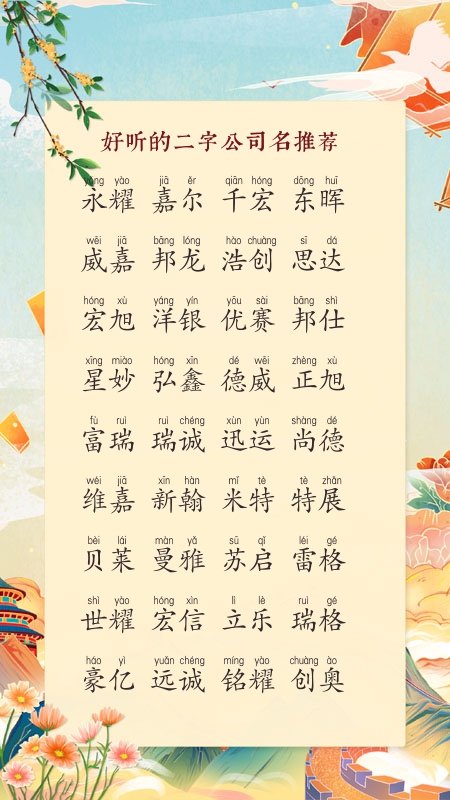 好听的二字公司名推荐
yǒng yào jiā ěr qiān hóng dōng huī
永耀 嘉尔 千宏 东晖
wēi jiā bāng lóng hào chuàng sī dá
威嘉 邦龙 浩创 思达
hóng xù yáng yín yōu sài bāng shì
宏旭 洋银 优赛 邦仕
xīng miào hóng xīn dé wēi zhèng xù
星妙 弘鑫 德威 正旭
fù ruì ruì chéng xùn yùn shàng dé
富瑞 瑞诚 迅运 尚德
wéi jiā xīn hàn mǐ tè tè zhǎn
维嘉 新翰 米特 特展
bèi lái màn yǎ sū qǐ léi gé
贝莱 曼雅 苏启 雷格
shì yào hóng xìn lì lè ruì gé
世耀 宏信 立乐 瑞格
háo yì yuǎn chéng míng yào chuàng ào
豪亿 远诚 铭耀 创奥